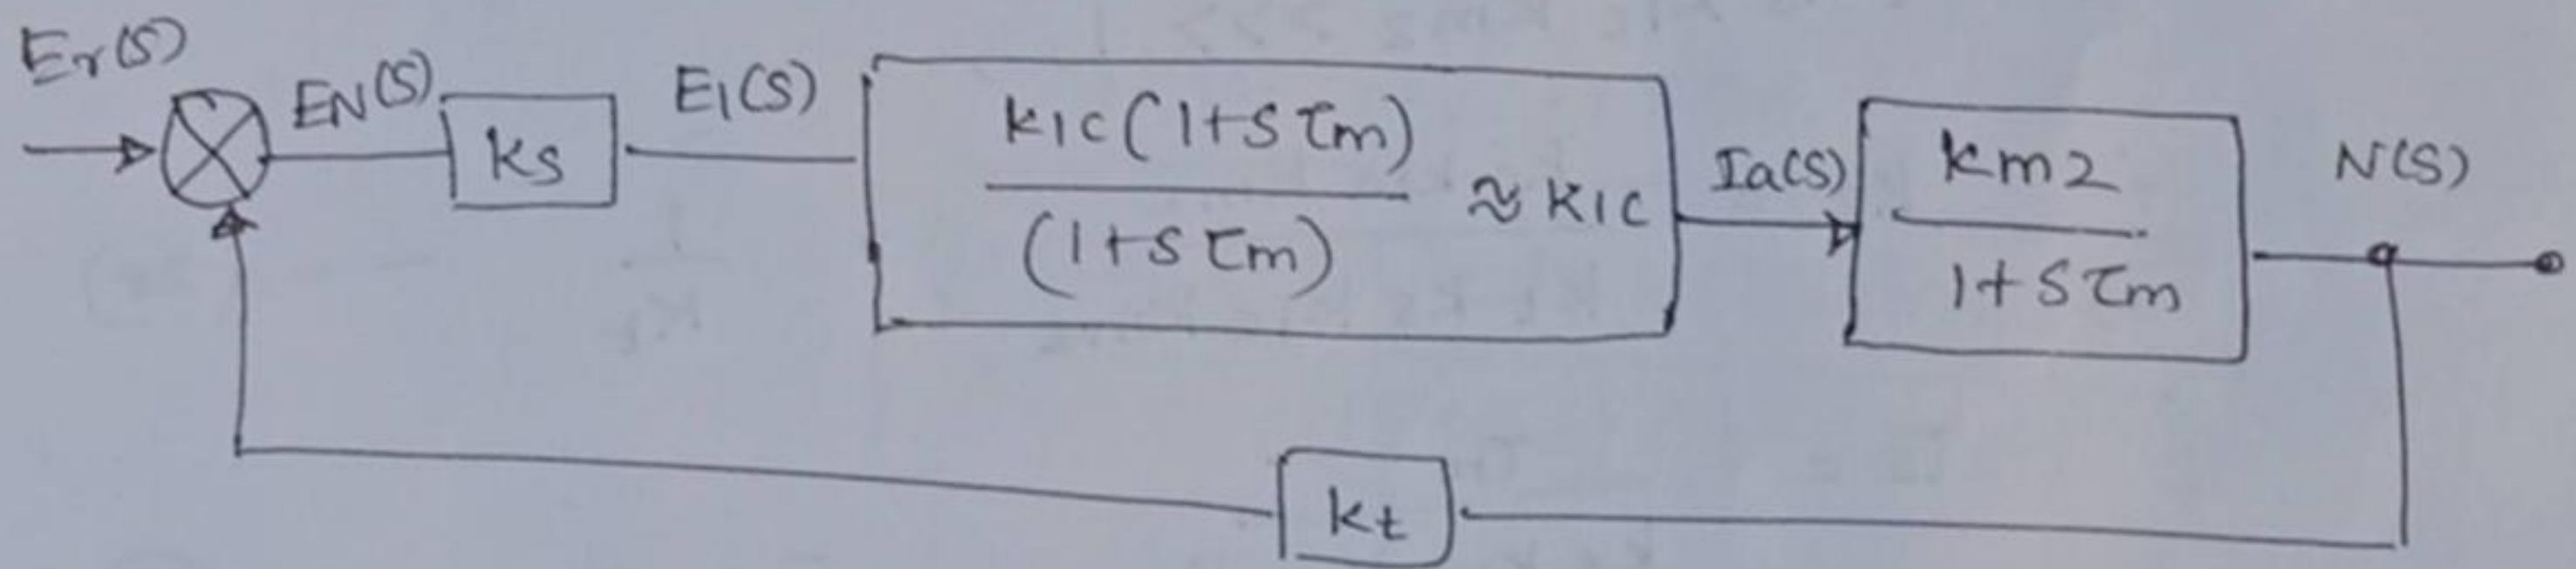 Er(S)
EN(S)
ks
E1(S)
k1c(1+Sτm)
(1+Sτm)
≈ k1c
Ia(S)
km2
1+Sτm
N(S)
kt